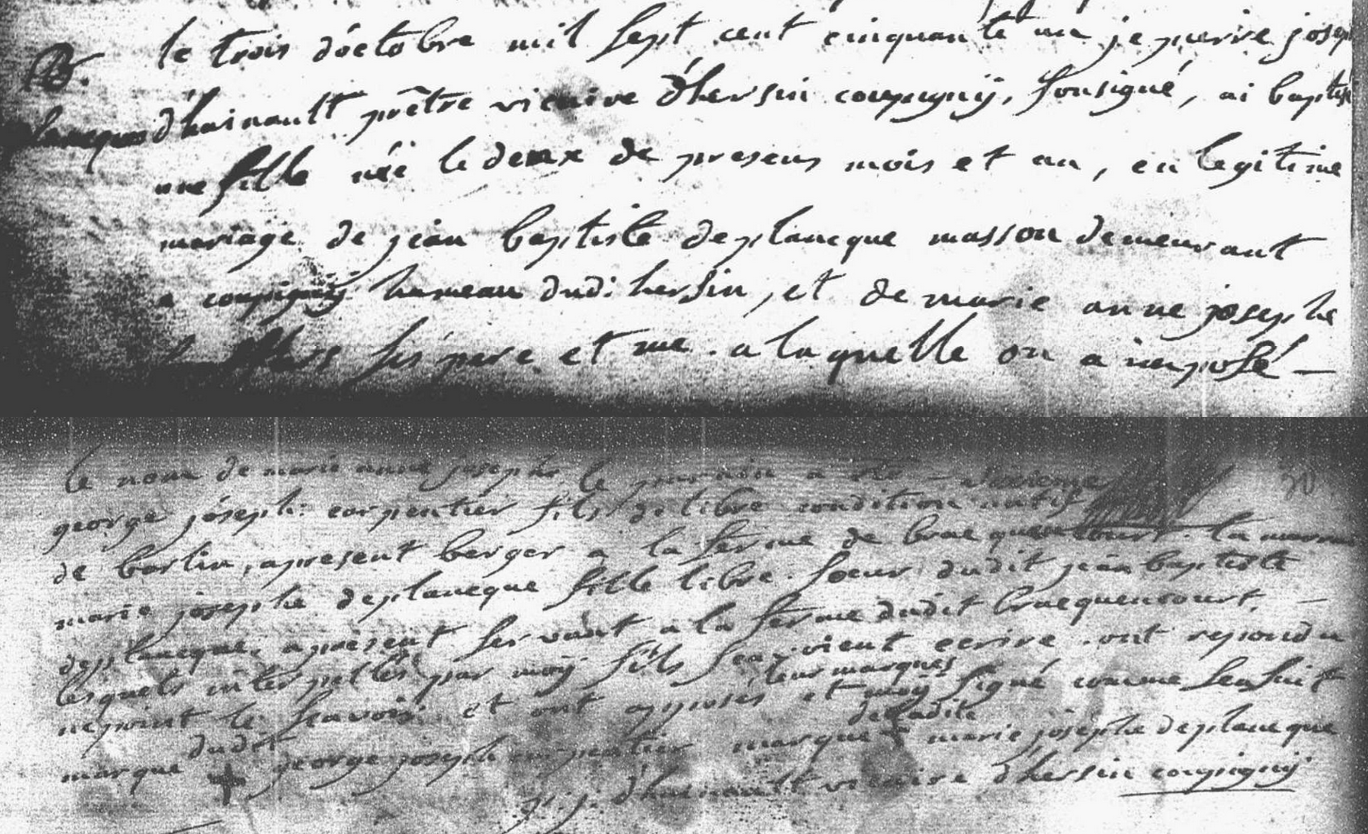 B.
le trois d'octobre mil sept cent cinquante un je pierre josep
d'hainault prêtre vicaire d'hersin coupigny, sousigné, ai baptis
une fille néé le deux de presens mois et an, en legitime
mariage de jean baptiste deplancque masson demeurant
a coupigny hameau dudi hersin, et de marie anne josephe
ses pere et me. a laquelle on a imposé —
le nom de marie anne josephe le parrain a été
george joseph carpentier fils de libre condition natif
de barlin, apresent berger a la ferme de bracquencourt. la
marie josephe deplancque fille libre soeur dudit jean baptiste
deplancque, apresent servant a la ferme dudit bracquencourt, —
lesquels interpellés par moy s'ils scavoient ecrire ont repondu
ne point le scavoir et ont apposés leurs marques et moy signé comme sensuit
marque dudit george joseph carpentier marque de ladite marie josephe deplancque
p. j. d'hainault vicaire d'hersin coupigny